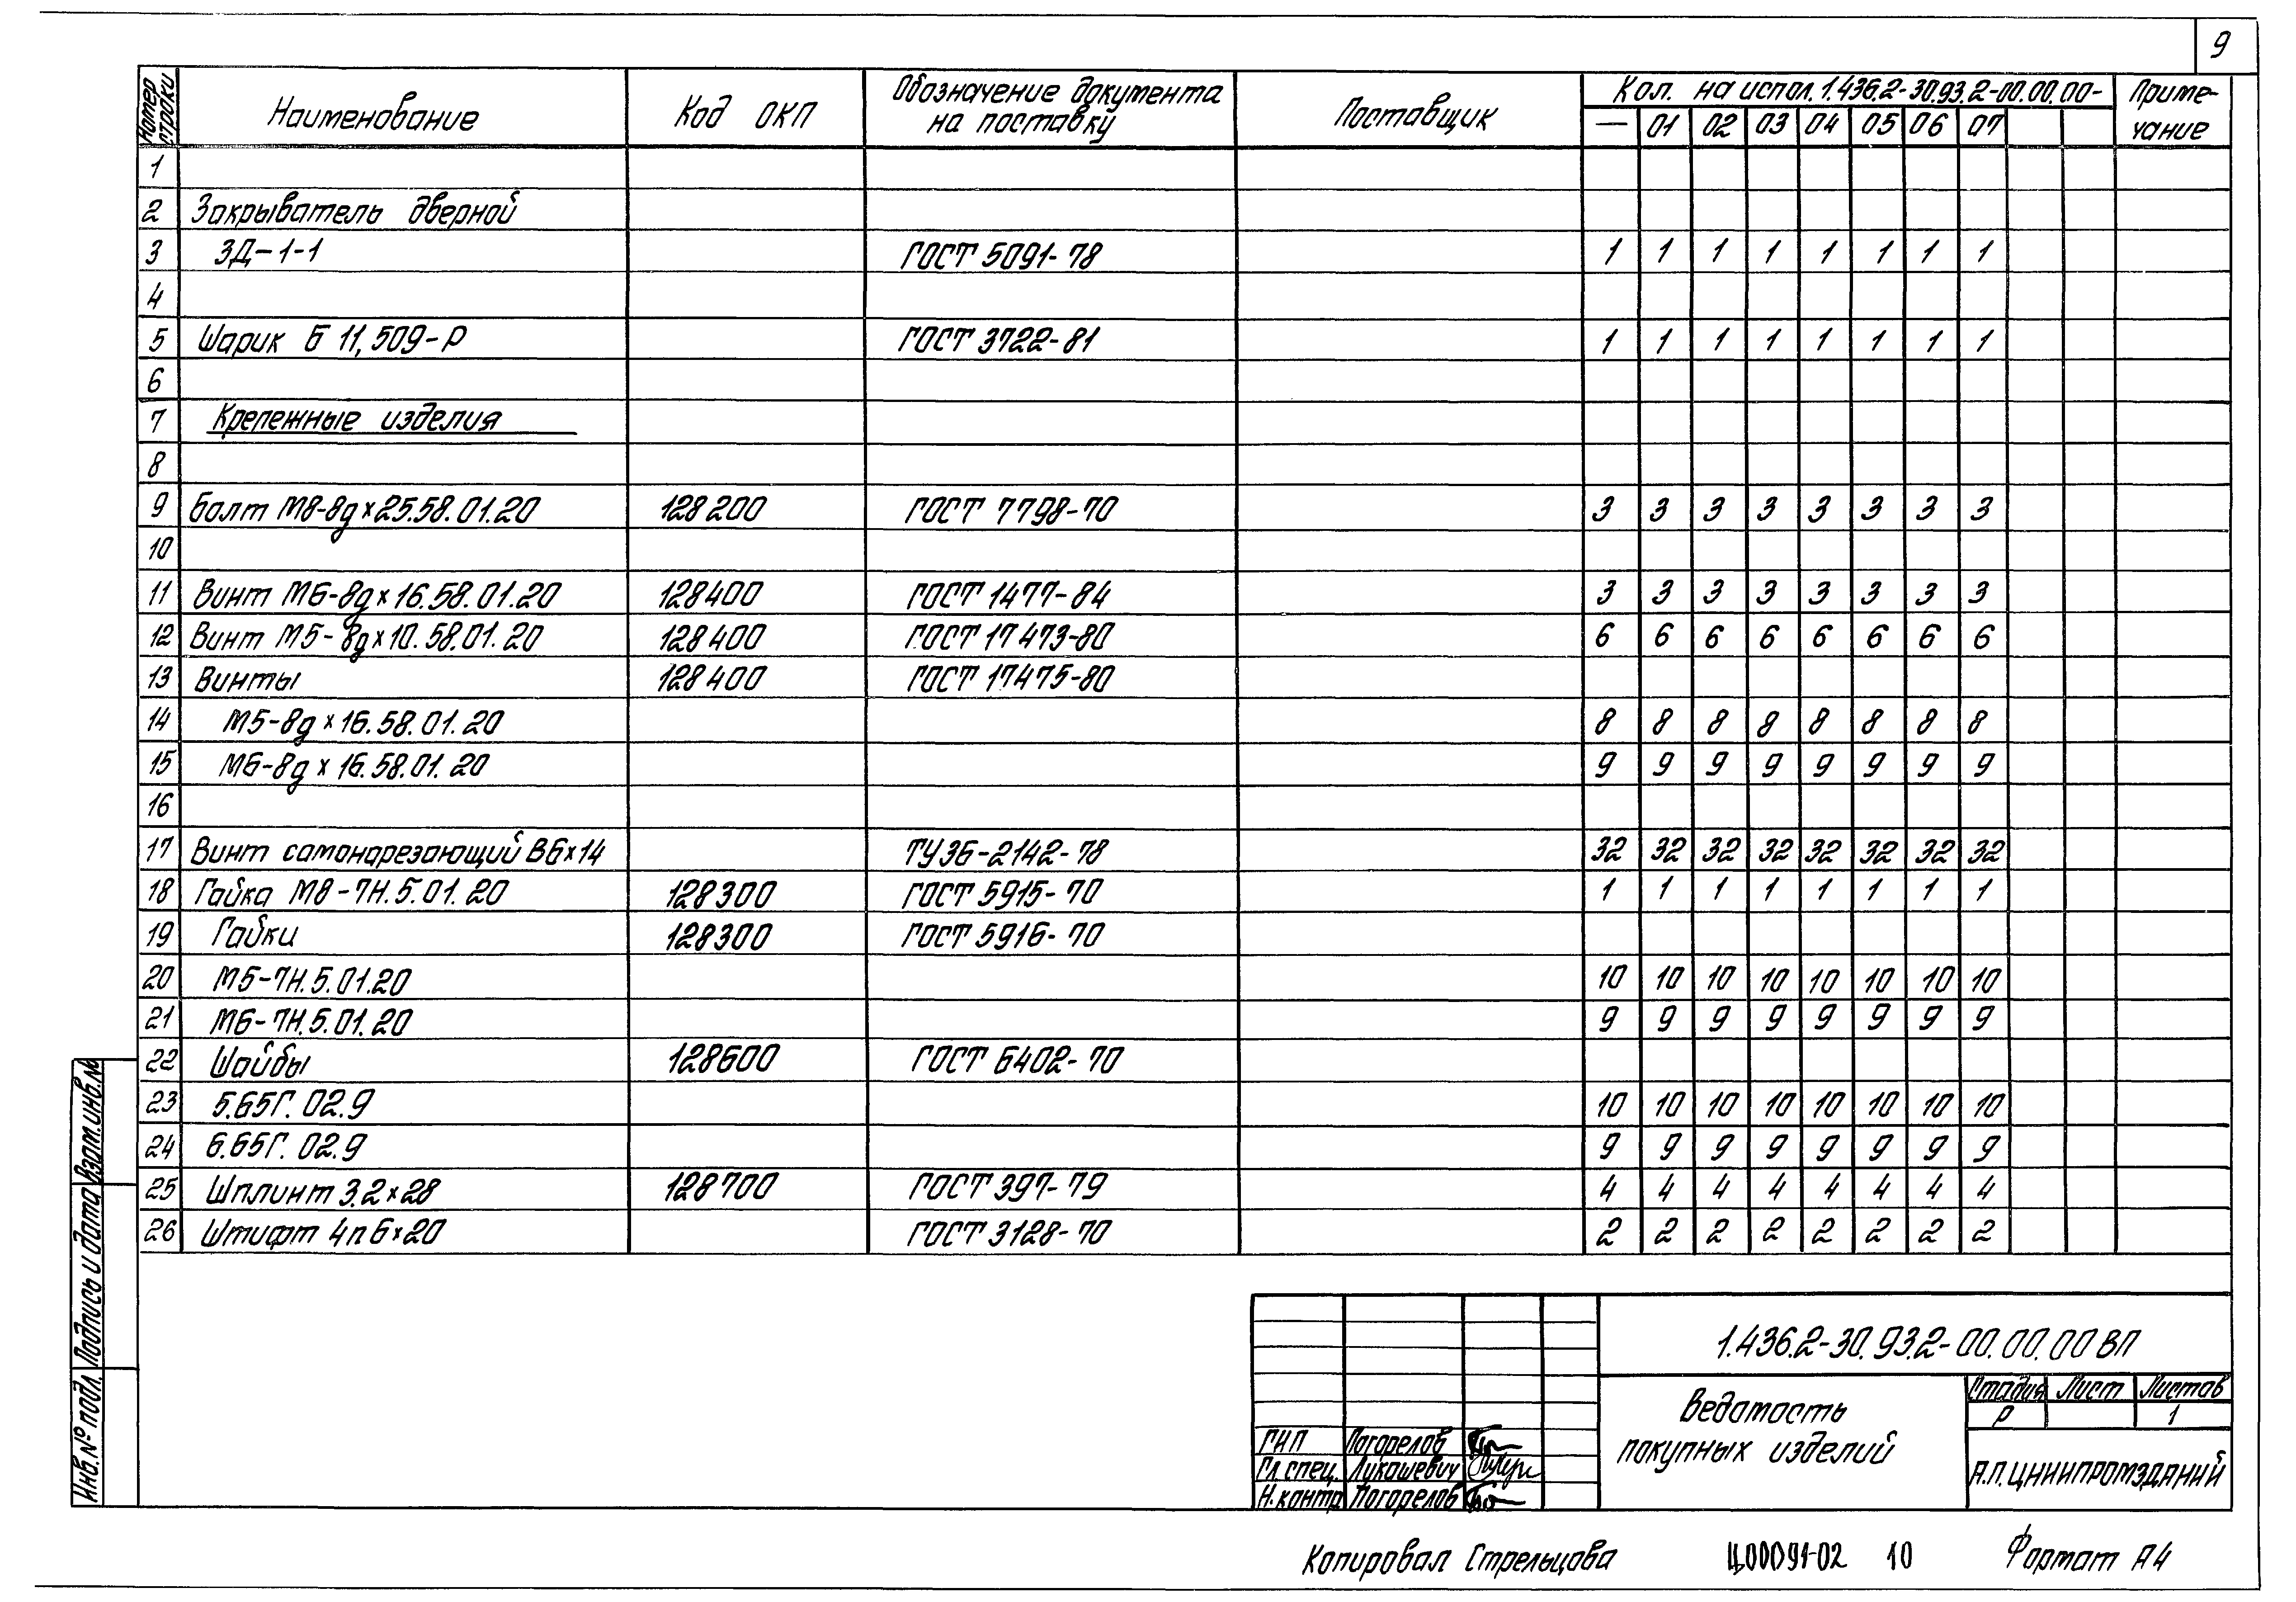 9
Номер строки Наименование Код ОКП Обозначение документа на поставку Поставщик Кол. на испол. 1.436.2-30.93.2-00.00.00- Приме-чание
— 01 02 03 04 05 06 07
1
2 Закрыватель дверной
3 ЗД-1-1 ГОСТ 5091-78 1 1 1 1 1 1 1 1
4
5 Шарик Б 11,509-Р ГОСТ 3722-81 1 1 1 1 1 1 1 1
6
7 Крепежные изделия
8
9 Болт М8-8gх25.58.01.20 128200 ГОСТ 7798-70 3 3 3 3 3 3 3 3
10
11 Винт М6-8gх16.58.01.20 128400 ГОСТ 1477-84 3 3 3 3 3 3 3 3
12 Винт М5-8gх10.58.01.20 128400 ГОСТ 17473-80 6 6 6 6 6 6 6 6
13 Винты 128400 ГОСТ 17475-80
14 М5-8gх16.58.01.20 8 8 8 8 8 8 8 8
15 М6-8gх16.58.01.20 9 9 9 9 9 9 9 9
16
17 Винт самонарезающий В6х14 ТУ36-2142-78 32 32 32 32 32 32 32 32
18 Гайка М8-7Н.5.01.20 128300 ГОСТ 5915-70 1 1 1 1 1 1 1 1
19 Гайки 128300 ГОСТ 5916-70
20 М5-7Н.5.01.20 10 10 10 10 10 10 10 10
21 М6-7Н.5.01.20 9 9 9 9 9 9 9 9
22 Шайбы 128600 ГОСТ 6402-70
23 5.65Г.02.9 10 10 10 10 10 10 10 10
24 6.65Г.02.9 9 9 9 9 9 9 9 9
25 Шплинт 3.2х28 128700 ГОСТ 397-79 4 4 4 4 4 4 4 4
26 Штифт 4п6х20 ГОСТ 3128-70 2 2 2 2 2 2 2 2
Взам.инв.№
Подпись и дата
Инв.№ подл.
1.436.2-30.93.2-00.00.00 ВП
Ведомость
покупных изделий
Стадия Лист Листов
Р 1
ГИП Погорелов
Гл. спец. Лукашевич
Н. контр Погорелов
А.П. ЦНИИПРОМЗДАНИЙ
Копировал Стрельцова Ц00091-02 10 Формат А4